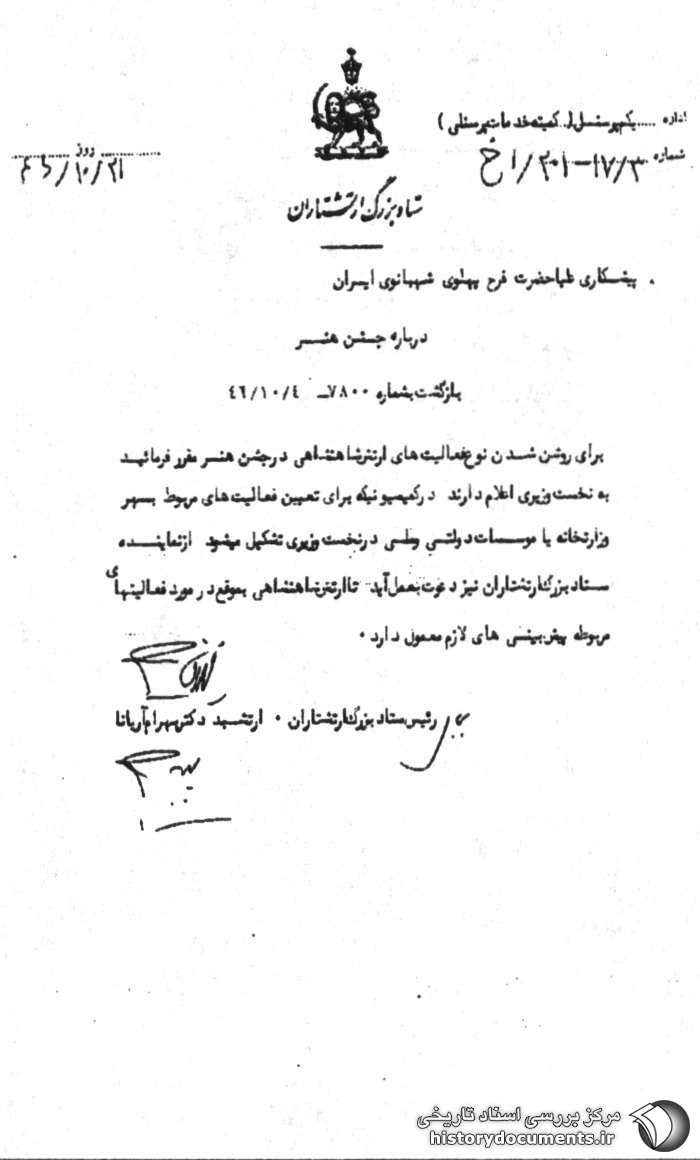 اداره ..... یکم پرسنل (.. کمیته خدمات پرسنلی )
شماره ۳/۱۷-۲۰۱/۱خ
روز
۱۰/۲۱/
ستاد بزرگ ارتشتاران
پیشکاری علیاحضرت فرح پهلوی شهبانوی ایران
درباره جشن هنر
بازگشت بشماره ۷۸۰۰ـ ۴۶/۱۰/۴
برای روشن شدن نوع فعالیت های ارتش شاهنشاهی در جشن هنر مقرر فرمائید
به نخست وزیری اعلام دارند در کمیسیونیکه برای تعیین فعالیت های مربوط بسهر
وزارتخانه یا موسسات دولتی و ملی در نخست وزیری تشکیل میشود از نماینده
ستاد بزرگ ارتشتاران نیز دعوت بعمل آید تا ارتش شاهنشاهی بموقع در مورد فعالیتهای
مربوطه پیش بینی های لازم معمول دارد ۰
رئیس ستاد بزرگ ارتشتاران ۰ ارتشبد دکتر بهرام آریانا
مرکز بررسی اسناد تاریخی
historydocuments.ir